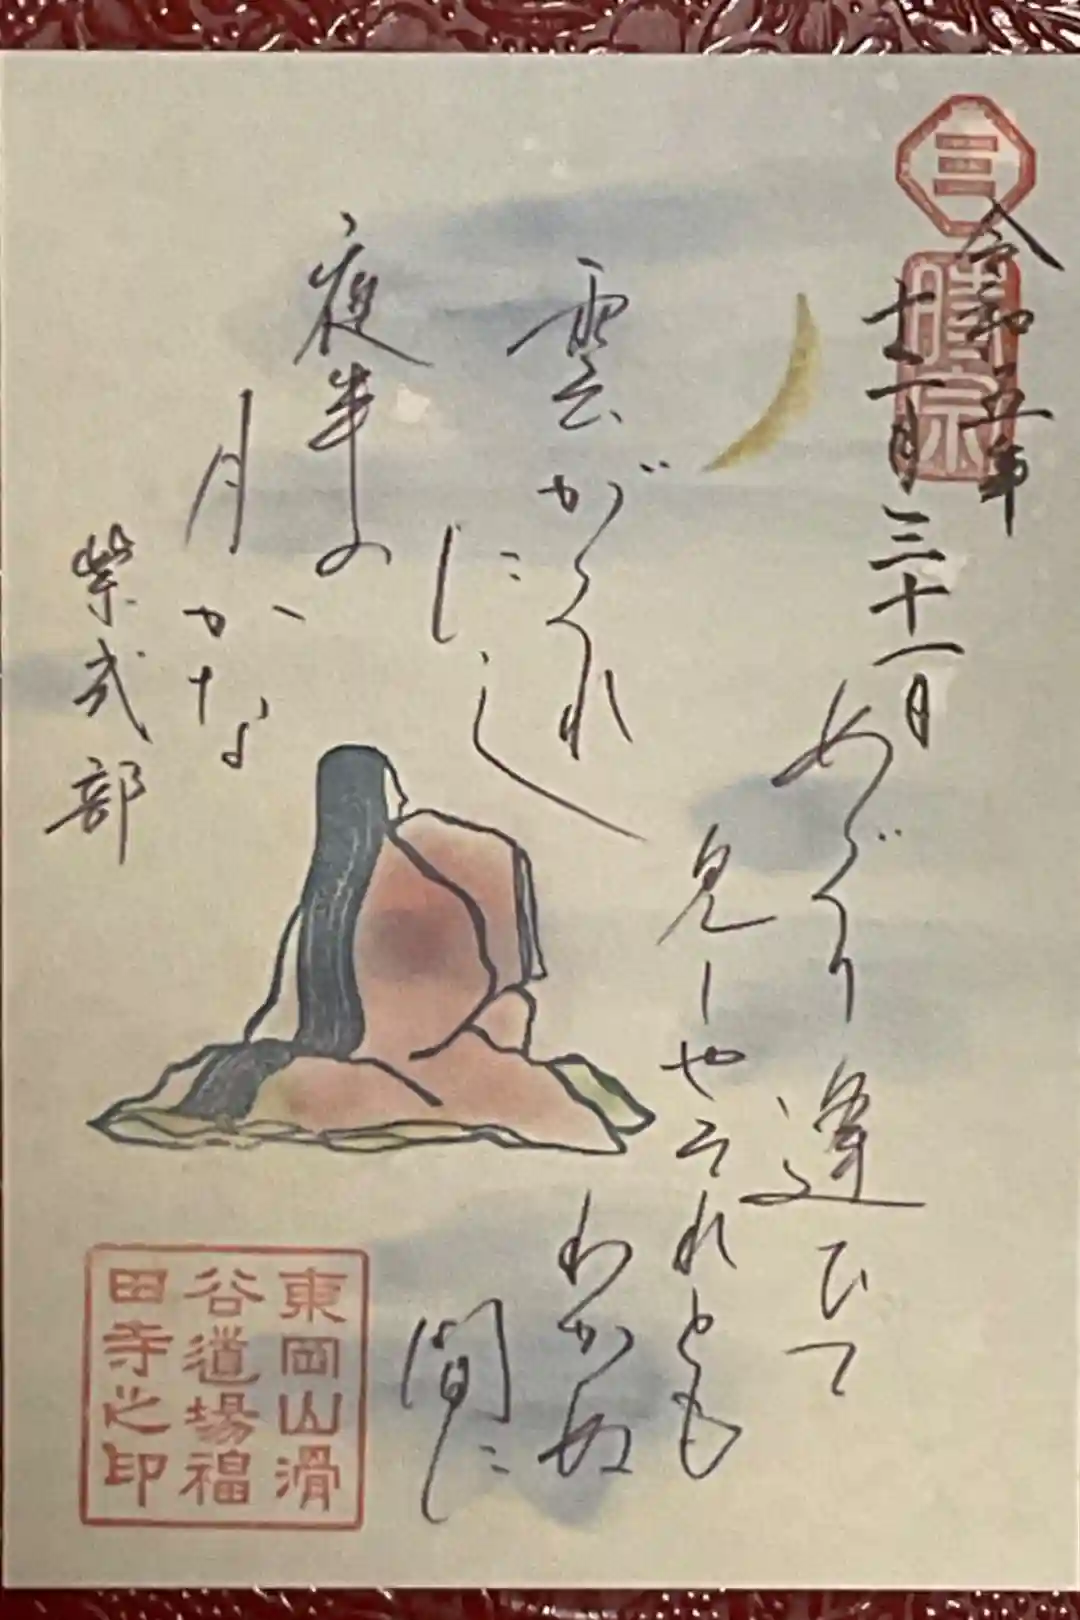 三
時宗
令和五年
十二月三十一日
めぐり逢ひて
見しやそれとも
わかぬ
間に
雲がくれ
にし
夜半の
月かな
紫式部
東岡山滑
谷道場福
田寺之印